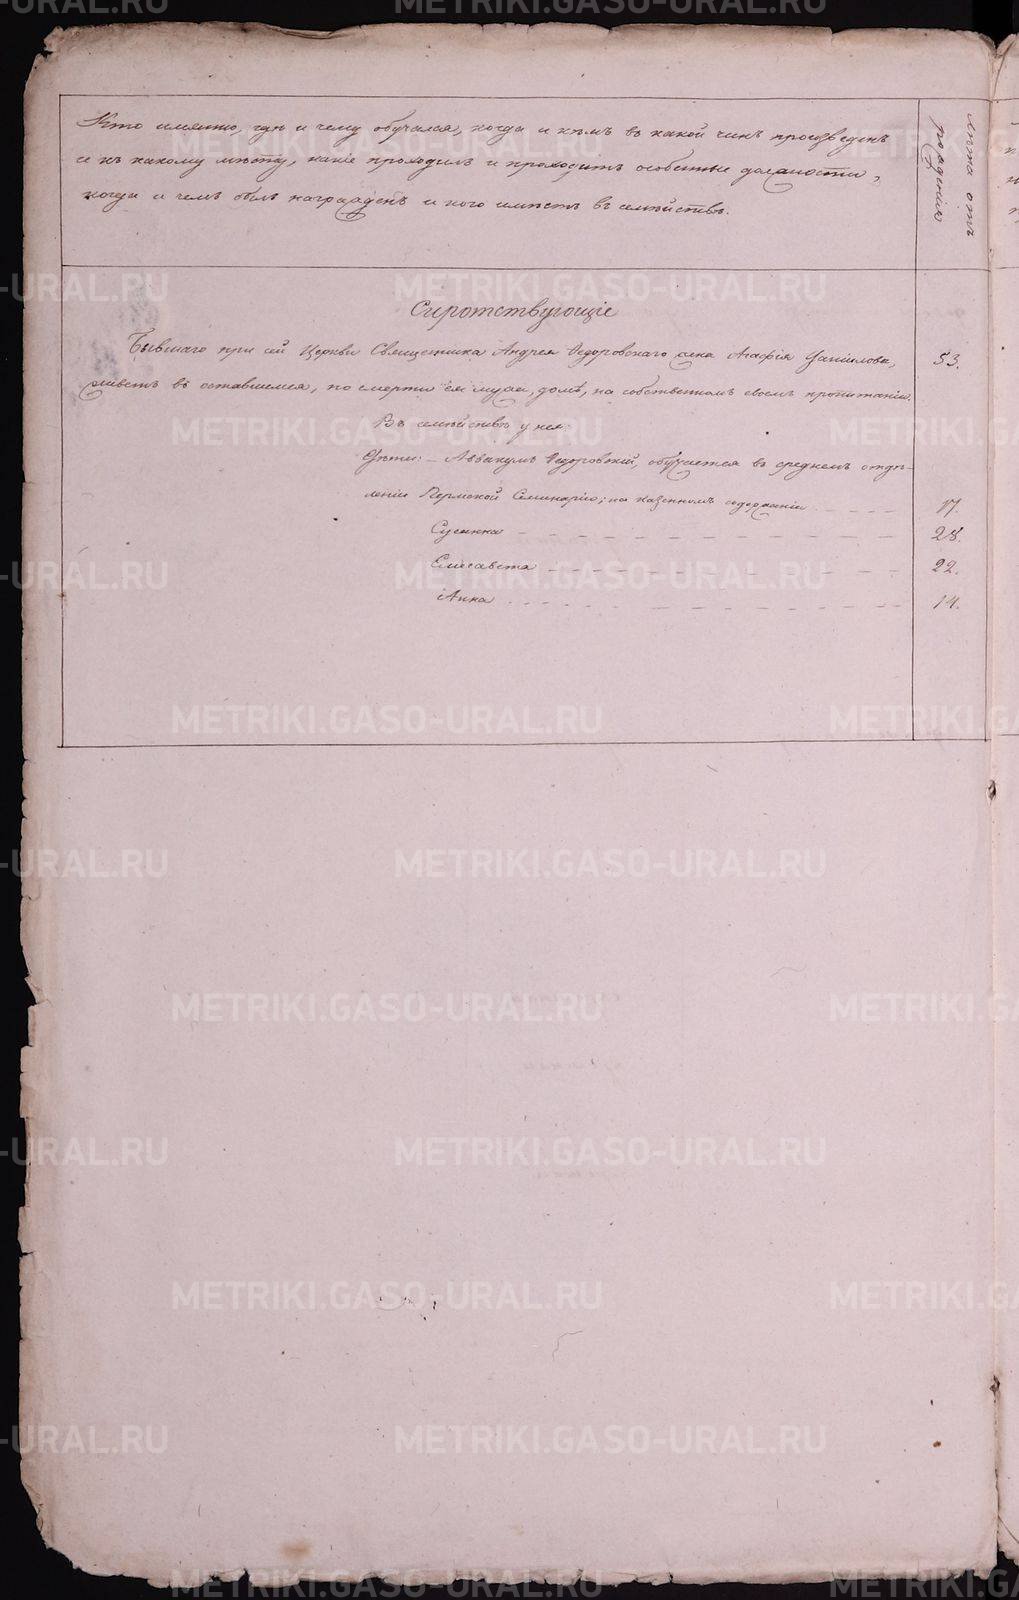 Кто именно, гдѣ и чему обучался, когда и кѣмъ въ какой чинъ произведенъ
и къ какому мѣсту, какіе проходилъ и проходитъ особенные должности,
когда и чемъ былъ награжденъ и кого имѣетъ въ семействѣ.
Лѣта отъ
рожденію
Сиротствующіе
Бывшаго при сей Церкви Священника Андрея Ѳедоровскаго жена Агафія Данилова, 53.
живетъ въ оставшемся, по смерти ея мужа, домѣ, на собственномъ своемъ пропитаніи.
Въ семействѣ у нея:
Дѣти: – Аввакумъ Ѳедоровскій, обучается въ среднемъ отдѣ-
леніи Пермской Семинаріи; на казенномъ содержаніи 17.
Сусанна 28.
Елисавета 22.
Анна 14.
METRIKI.GASO-URAL.RU